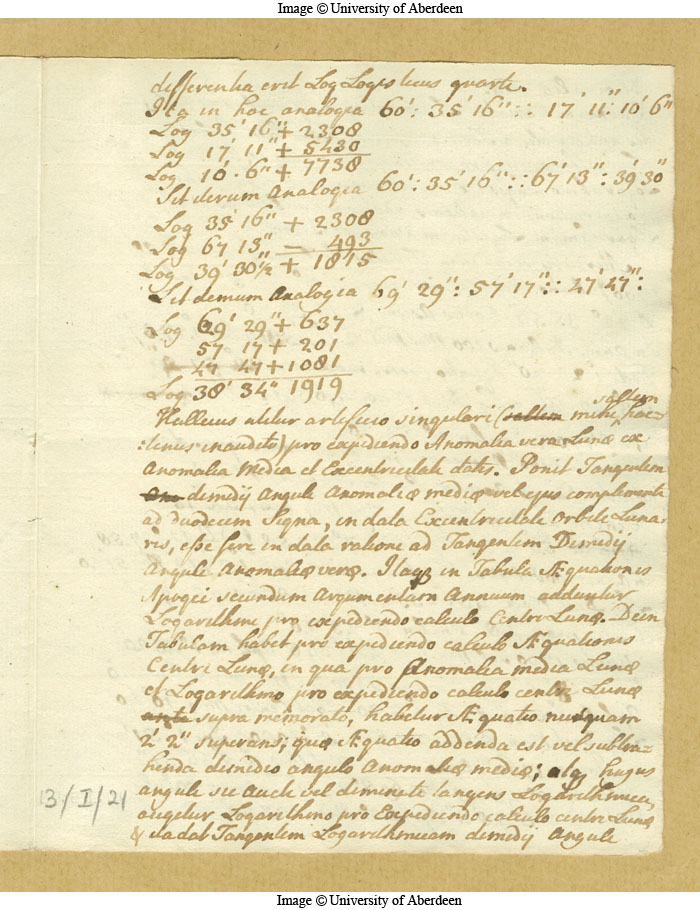 Image © University of Aberdeen
differentia erit Log Logisticus quarti.
Ita in hoc analogia 60': 35' 16":: 17' 11": 10' 6"
Log 35' 16" + 2308
Log 17' 11" + 5430
Log 10' 6" + 7738
Sit iterum Analogia 60': 35' 16":: 67' 13": 39' 30"
Log 35' 16" + 2308
Log 67 13" — 493
Log 39' 30"½ + 1815
Sit demum Analogia 69' 29": 57' 17":: 47' 47":
Log 69' 29" + 637
57 17 + 201
47 47 + 1081
Log 38' 34" 1919
Helleius utitur artificio singulari (saltem mihi hac-
saltem
:tenus inaudito) pro expediendo Anomalia vera Lunæ ex
Anomalia Media et Excentricitate datis. Ponit Tangentem
demidij Anguli Anomaliæ mediæ vel ejus complementi
ad duodecim Signa, in data Excentricitate Orbitæ Luna-
ris, esse fere in data ratione ad Tangentem Dimidij
Anguli Anomaliæ veræ. Itaq in Tabula Æquationis
Apogei secundum Argumentum Annuum adduntur
Logarithmi pro expediendo calculo Centri Lunæ. Dein
Tabulam habet pro expediendo calculo Æquationis
Centri Lunæ, in qua pro Anomalia media Lunæ
et Logarithmo pro expediendo calculo centri Lunæ
supra memorato, habetur Æquatio nunquam
2' 2" superans; quæ Æquatio addenda est vel subtra-
henda dimidio angulo Anomaliæ mediæ; atq hujus
anguli sic aucti vel diminuti tangens Logarithmica,
augetur Logarithmo pro Expediendo calculo centri Lunæ
& ita dat Tangentem Logarithmicam dimidij Anguli
13/I/21
Image © University of Aberdeen